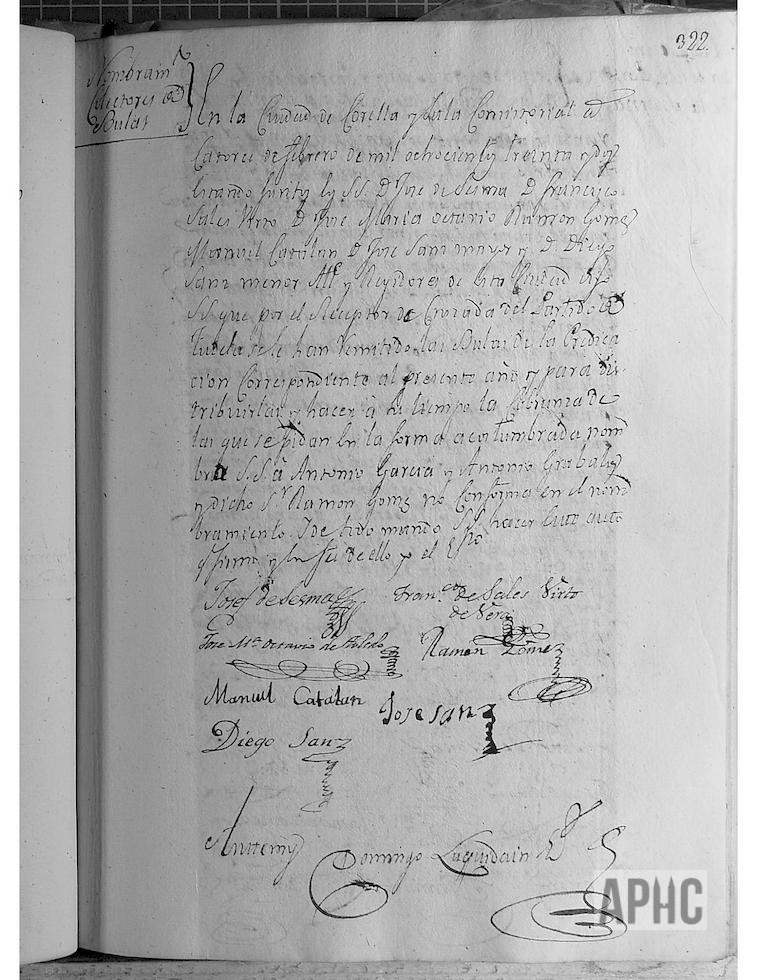 322.
Nombram.to
Colectores de
Bulas
En la Ciudad de Corella y Sala Consistorial a
Catorce de febrero de mil ochocientos treinta y dos
Estando juntos los SS. D. Jose de Sesma D. Francisco
Sales Virto D. Jose Maria Octavio Ramon Gomez
Manuel Catalan D. Jose Sanz mayor y D. Diego
Sanz menor Alle y Regidores de esta Ciudad
SS. que por el Receptor de Cruzada del Partido de
Tudela se le han remitido las Bulas de la Predica
cion Correspondiente al presente año y para dis
tribuirlas y hacer a su tiempo la Cobranza de
las que se pidan En la forma acostumbrada nom
bra S.S. a Antonio Garcia y Antonio Grabalos
y dicho Sr. Ramon Gomez no Conforma en el nom
bramiento. Y de todo mando SS. hacer Este auto
q firmo y En fee de ello yo el Essno
Josef de Sesma
Fran.co de Sales Virto
de Vera
Jose Ma. Octavio de Toledo
Ramon Gomez
Manuel Catalan
Jose Sanz
Diego Sanz
Antemy
Domingo Luquidain
APHC